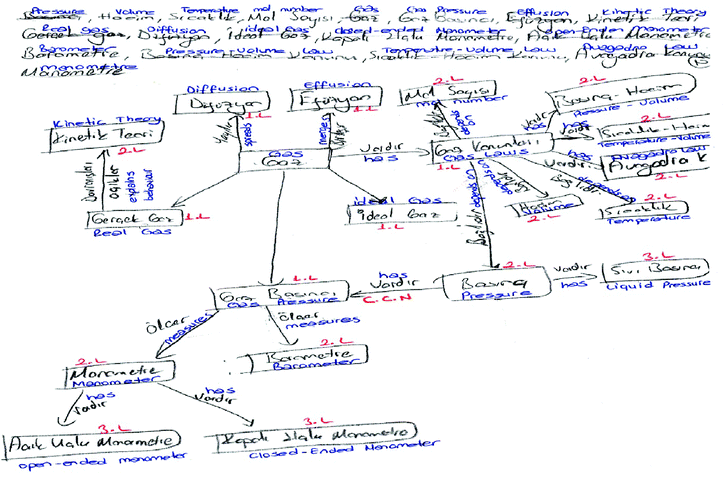 Pressure Volume Temperature mol number Gas Gas Pressure Effusion Kinetic Theory
Basınç, Hacim, Sıcaklık, Mol Sayısı, Gaz, Gaz Basıncı, Efüzyon, Kinetik Teori
Real Gas Diffusion ideal Gas closed-ended Manometer open-Ended Manometer
Gerçek gaz, Difüzyon, İdeal Gaz, Kapalı Uçlu Manometre, Açık Uçlu Manometre
Barometer Pressure-Volume Law Temperature-Volume Law Avogadro Law
Barometre, Basınç Hacim Kanunu, Sıcaklık Hacim Kanunu, Avogadro Kanunu
Manometre
Manometre
Diffusion
Difüzyon
1.L
Effusion
Efüzyon
1.L
2.L
Mol Sayısı
mol number
2.L
Basınç-Hacim
Pressure-Volume
Kinetic Theory
Kinetik Teori
2.L
spreads
Gas
Gaz
Vardır
has
Gaz Kanunları
Gas Laws
1.L
has
Vardır
2.L
Sıcaklık-Hacim
Temperature-Volume
Avogadro Law
Avogadro K
2.L
explains
behaviour
Gerçek Gaz
1.L
Real Gas
ideal Gas
İdeal Gaz
1.L
Hacim
Volume
2.L
2.L
Sıcaklık
Temperature
1.L
Gaz Basıncı
Gas Pressure
has
Vardır
C.C.N
2.L
Basınç
Pressure
Vardır
has
3.L
Sıvı Basıncı
Liquid Pressure
ölçer
measures
ölçer
measures
2.L
Barometre
Barometer
2.L
Manometre
Manometer
has
Vardır
has
Vardır
3.L
Açık Uçlu Manometre
open-ended manometer
3.L
Kapalı Uçlu Manometre
Closed-Ended Manometer